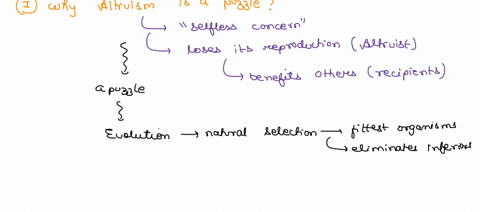 ① Why Altruism is a puzzle?
"selfless concern"
loses its reproduction (Altruist)
benefits others (recipients)
a puzzle
Evolution → natural selection → fittest organisms
eliminates inferiors